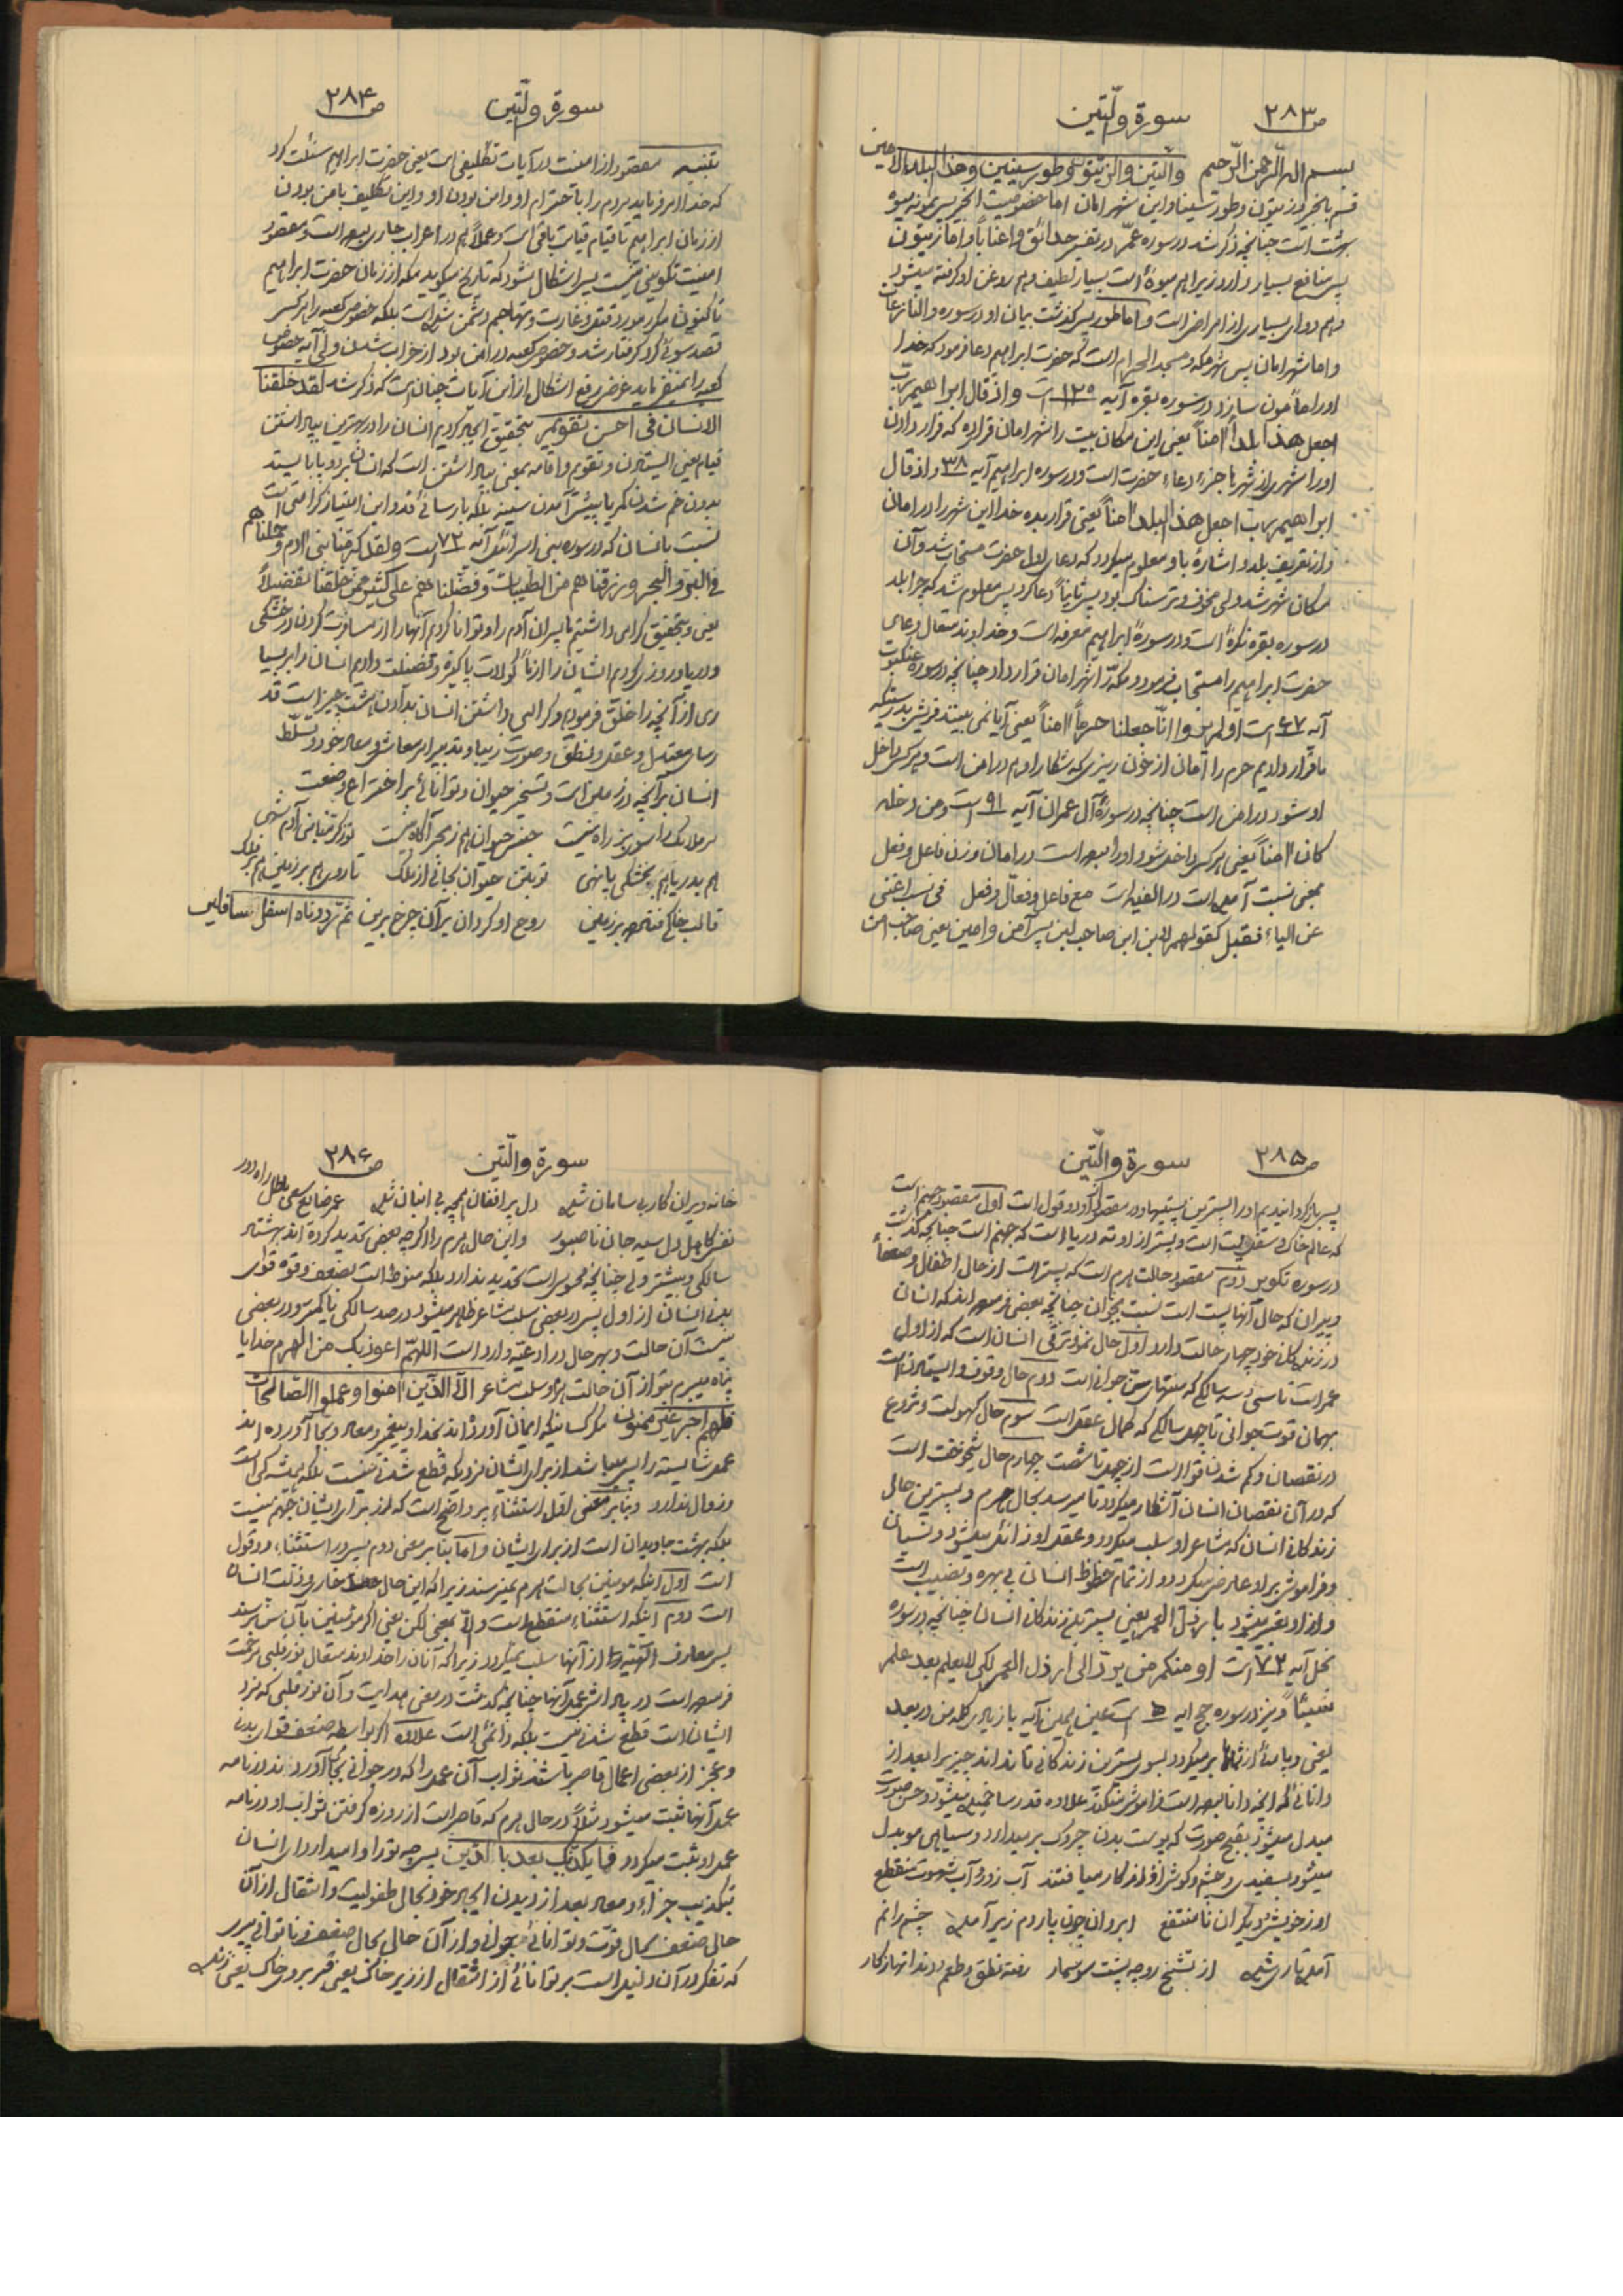 ص ۲۸۳ سورة والتین
بسم الله الرحمن الرحیم والتین والزیتون وطور سینین وهذا البلد الامین
قسم بانجیر و زیتون و طور سینا و این شهر امان اما خصوصیت انجیر پس نمونه میوه
بهشت است چنانچه ذکر شد در سوره عمّ در تفسیر حدائق و اعناباً و اما زیتون
پس منافع بسیار دارد زیرا هم میوهٔ است بسیار لطیف و هم روغن از او گرفته میشود
و هم دوای بسیاری از امراض است و اما طور پس گذشت بیان او در سوره والنازعات
و اما شهر امان پس شهر مکه و مسجد الحرام است که حضرت ابراهیم دعا فرمود که خدا
او را مأمون سازد در سوره بقره آیه ۱۲۵ است واذ قال ابراهیم رب
اجعل هذا بلداً امناً یعنی این مکان بیت را شهر امان قرار ده که قرار دادن
او را شهر از شهرها جزء دعاء حضرت است و در سوره ابراهیم آیه ۳۸ واذ قال
ابراهیم رب اجعل هذا البلد امناً یعنی قرار بده خدا این شهر را در امان
و از تعریف بلد و اشارهٔ باو معلوم میگردد که دعای اول حضرت مستجاب شد و آن
مکان شهر شد ولی مخوف و ترسناک بود پس ثانیاً دعا کرد پس معلوم شد که چرا بلد
در سوره بقره نکرهٔ است و در سورهٔ ابراهیم معرفه است و خداوند متعال دعای
حضرت ابراهیم را مستجاب فرمود و مکه را شهر امان قرار داد چنانچه در سوره عنکبوت
آیه ۶۷ است اولم یروا انّا جعلنا حرماً امناً یعنی آیا نمی بینند قریش بدرستیکه
ما قرار دادیم حرم را امان از خون ریزی که شکار او هم در امن است و هر کس داخل
او شود در امن است چنانچه در سورهٔ آل عمران آیه ۹۱ است ومن دخله
کان امناً یعنی هر کس داخل شود او را بوده است در امان و وزن فاعل و فعل
بمعنی نسبت آمده است در الفیه است مع فاعل وفعّال وفعل فی نسب اغنی
عن الیاء فقبل کقولهم لابن ای صاحب لبن پس آمن و امین یعنی صاحب امن
ص ۲۸۴ سورة والتین
تنبیه مقصود از امنیت در آیات تکلیفی است یعنی حضرت ابراهیم مسئلت کرد
که خدا امر فرماید مردم را باحترام او و امن بودن او و این تکلیف بامن بودن
از زمان ابراهیم تا قیام قیامت باقی است و عملاً هم در اعراب جاری بوده است و مقصود
امنیت تکوینی نیست پس اشکال نشود که تاریخ میگوید مکه از زمان حضرت ابراهیم
تا کنون مکرر مورد قتل و غارت و تهاجم دشمن شده است بلکه خصوص کعبه را هر کس
قصد سوئی کرد گرفتار شد و خصوص کعبه در امن بود از خراب شدن ولی آیه خصوص
کعبه را نمیفرماید غرض رفع اشکال از این آیات چنان است که ذکر شد لقد خلقنا
الانسان فی احسن تقویم بتحقیق ایجاد کردیم انسان را در بهترین بپا داشتن
قیام یعنی ایستادن و تقویم و اقامه بمعنی بپا داشتن است که انسان بر دو پا بایستد
بدون خم شدن کمر یا پیشتر آمدن سینه بلکه با رسائی قد و این امتیاز کرامتی است
نسبت بانسان که در سوره بنی اسرائیل آیه ۷۲ است ولقد کرمنا بنی ادم وحملناهم
فی البر والبحر ورزقناهم من الطیبات وفضلناهم علی کثیر ممن خلقنا تفضیلاً
یعنی و بتحقیق گرامی داشتیم ما پسران آدم را و توانا کردیم آنها را از مسافرت کردن در خشکی
و دریا و روزی کردیم ایشان را از مأکولات پاکیزه و فضیلت دادیم انسان را بر بسیا
ری از آنچه را خلق فرمودیم و گرامی داشتن انسان بدادن هشت چیز است قد
رسای معتدل و عقل و نطق و صورت زیبا و تدبیر امر معاش و معاد خود و تسلط
انسان بر آنچه در زمین است و تسخیر حیوان و توانائی بر اختراع و صنعت
بر ملائک را سوی بر راه نیست جنس حیوان هم ز بحر آگاه نیست تو ز کرمنا بنی آدم شهی
هم بدریا هم بخشکی پا نهی تو بتن حیوان بجانی از ملک تا روی هم بر زمین هم بر فلک
قالب خاکی فتاده بر زمین روح او گردان بر آن چرخ برین ثم رددناه اسفل سافلین
ص ۲۸۵ سورة والتین
پس باز گردانیدیم او را پست‌ترین پستیها و در مقصود از او دو قول است اول مقصود جهنم است
که عالم خاک و سفلی پست است و پست‌تر از او ته دریا است که جهنم است چنانچه گذشت
در سوره تکویر دوم مقصود حالت هرم است که پست‌تر است از حال اطفال و ضعفا
و پیران که حال آنها پست است نسبت بجوان چنانچه بعضی فرموده‌اند که انسان
در زندگانی خود چهار حالت دارد اول حال نمو و ترقی انسان است که از اول
عمر است تا سی و سه سالگی که منتهای سن جوانی است دوم حال وقوف و ایستادن است
بهمان قوت جوانی تا چهل سالگی که کمال عقل است سوم حال کهولت و شروع
در نقصان و کم شدن قوا است از چهل تا شصت چهارم حال شیخوخت است
که در آن نقصان انسان آشکار میگردد تا میرسد بحال هرم و پست‌ترین حالی
زندگانی انسان که مشاعر او سلب میگردد و عقل او زائل میشود و نسیان
و فراموشی بر او عارض میگردد و از تمام حظوظ انسانی بی بهره و نصیب است
و از او تعبیر میشود بارذل العمر یعنی پست‌ترین زندگانی انسان چنانچه در سوره
نحل آیه ۷۲ است ومنکم من یرد الی ارذل العمر لکی لایعلم بعد علم
شیئاً و نیز در سوره حج آیه ۵ است عین همین آیه با زیادی کلمه من در بعد
یعنی و پاره‌ای از شماها بر میگردد بسوی پست‌ترین زندگانی تا نداند چیزیرا بعد از
دانائی که آنچه دانا بوده است فراموش میکند علاوه قد رسا خمیده میشود و حسن صورت
مبدل میشود بقبح صورت که پوست بدن چروک بر میدارد و سیاهی مو بدل
میشود بسفیدی و چشم و گوش او از کار میافتند آب زرد و آب شهوت منقطع
او ز خویش و دیگران نا منتفع ابروان چون پاردم زیر آمده چشم را نم
آمده تاری شده از تشنج رو چو پشت سوسمار رفته نطق و طعم و دندانها ز کار
ص ۲۸۶ سورة والتین
خانه ویران کار بی سامان شده دل پر افغان همچو نی انبان شده عمر ضایع سعی باطل راه دور
نفس کاهل دل سیه جان ناصبور و این حال هرم را اگر چه بعضی تحدید کرده‌اند بهشتاد
سالگی و بیشتر ولی چنانچه محسوس است تحدید ندارد بلکه منوط است بضعف و قوه قوای
بدنی انسان از اول پس در بعضی سلب مشاعر ظاهر میشود در صد سالگی یا کمتر و در بعضی
نیست آن حالت و بهر حال در ادعیه وارد است اللهم اعوذ بک من الهرم خدایا
پناه میبرم بتو از آن حالت هرم و سلب مشاعر الا الذین امنوا وعملوا الصالحات
فلهم اجر غیر ممنون مگر کسانیکه ایمان آورده‌اند بخدا و پیغمبر و معاد و بجا آورده‌اند
عمل شایسته را پس میباشد از برای ایشان مزدیکه قطع شدنی نیست بلکه همیشه‌گی است
و زوال ندارد و بنابر معنی اول استثناء پر واضح است که از برای ایشان جهنم نیست
بلکه بهشت جاویدان است از برای ایشان و اما بنابر معنی دوم پس در استثناء دو قول
است اول اینکه مومنین بحالت هرم نمیرسند زیرا که این حال خواری و ذلت انسان
است دوم اینکه استثناء منقطع است و الا بمعنی لکن یعنی اگر مؤمنین بآن سن برسند
پس معارف الهیه از آنها سلب نمیگردد زیرا که آنان را خداوند متعال نور قلبی مرحمت
فرموده است در پاداش عمل آنها چنانچه گذشت در معنی هدایت و آن نور قلبی که نزد
ایشان است قطع شدنی نیست بلکه دائمی است علاوه اگر بواسطه ضعف قوای بدن
و عجز از بعضی اعمال قاصر باشند ثواب آن عمل را که در جوانی بجا آوردند در نامه
عمل آنها ثبت میشود مثلاً در حال هرم که قاصر است از روزه گرفتن ثواب او در نامه
عمل او ثبت میگردد فما یکذبک بعد بالدین پس چه تو را وا میدارد ای انسان
بتکذیب جزاء و معاد بعد از دیدن ایجاد خود بحال طفولیت و انتقال از آن
حال ضعف بحال قوت و توانائی جوانی و از آن حال بحال ضعف و ناتوانی پیری
که تفکر در آن دلیل است بر توانائی از انتقال از زیر خاک یعنی قبر بروی خاک یعنی زنده